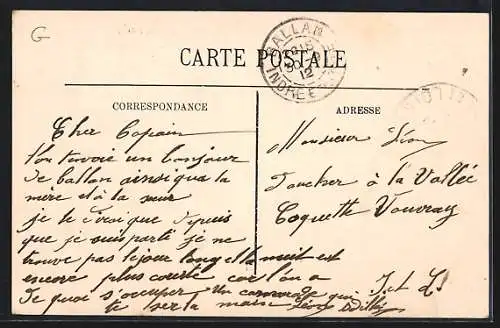 G
CARTE POSTALE
BALLAN
INDRE
12
CORRESPONDANCE
ADRESSE
Cher Copain
un bonjour
de ballan ainsi qua la
mère et à la seur
je te dirai que depuis
que je suis parti je ne
trouve pas le jour long et la nuit est
encore plus courte car l'on a
de quoi s'occuper Un camarade qui
te serre la main Léon
Monsieur Léon
à la Vallée
Coquette Vouvray
I et L